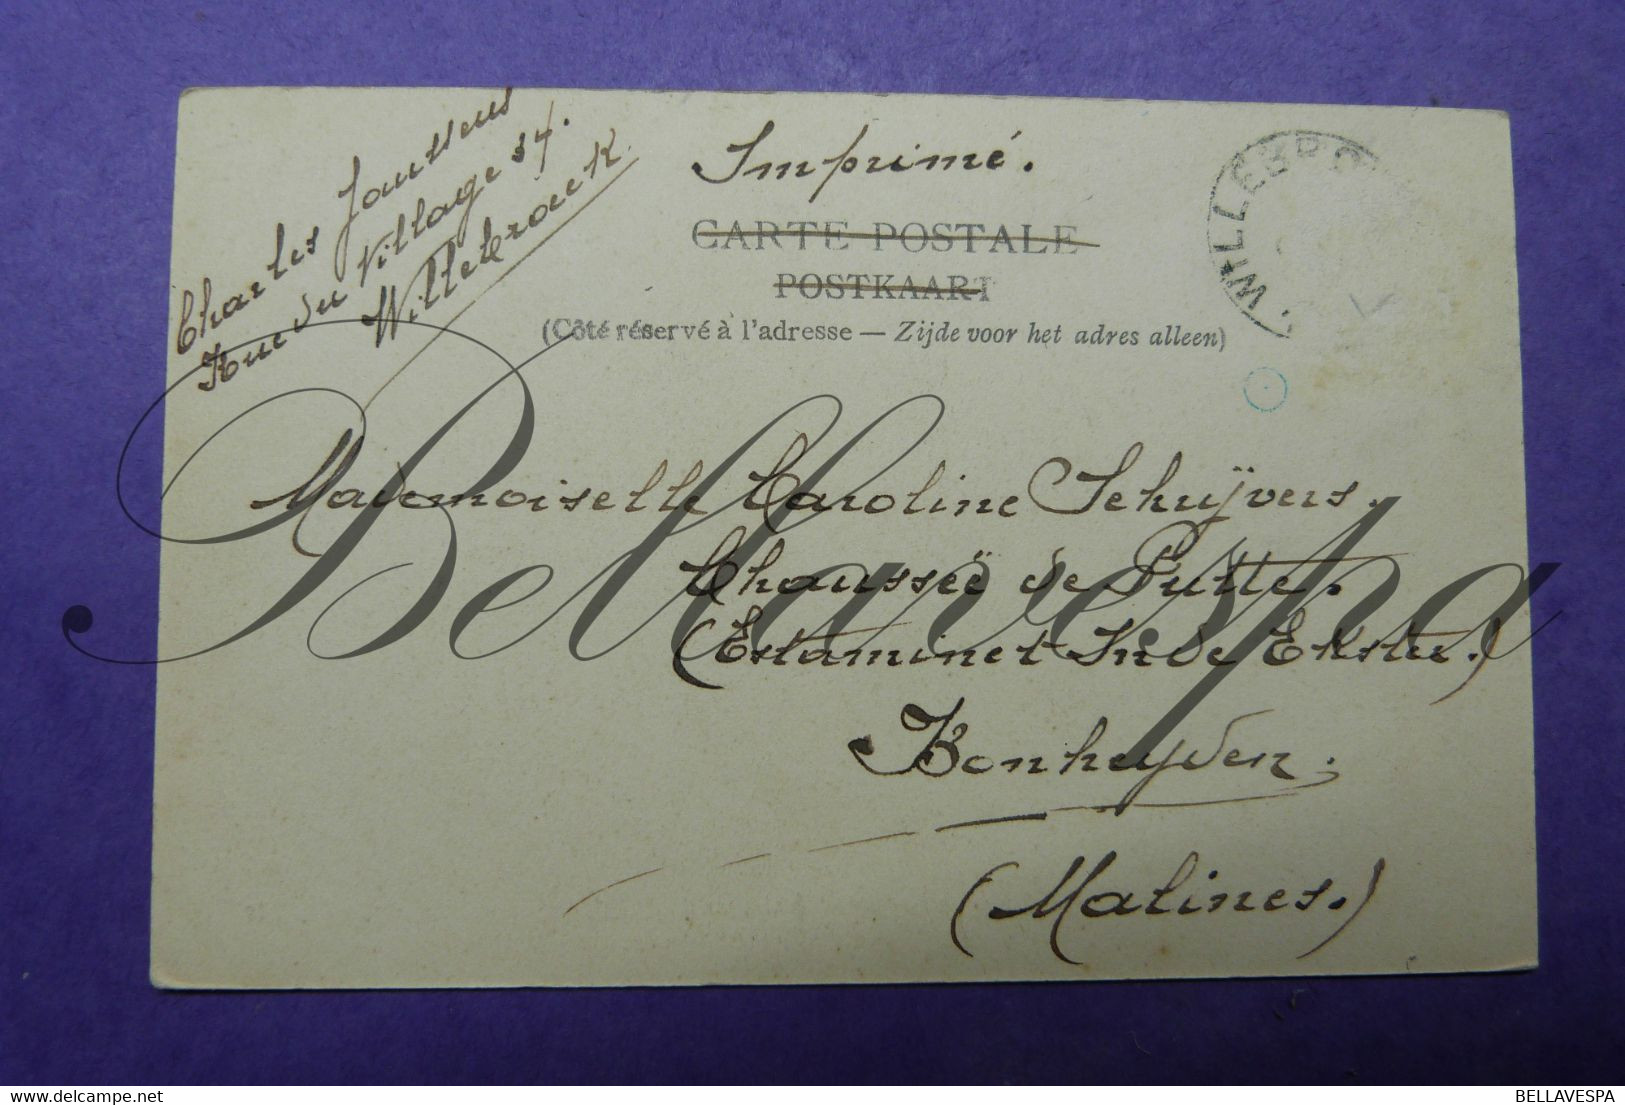 Charles Janssens
Rue du Village 34.
Willebrouck
Imprimé.
CARTE POSTALE
POSTKAART
(Côté réservé à l'adresse — Zijde voor het adres alleen)
WILLEBRO
Mademoiselle Caroline Schuÿvers.
Chausseë de Putte.
(Estaminet In de Ekster.)
Bonheyden.
(Malines.)
Bellavespa
BELLAVESPA